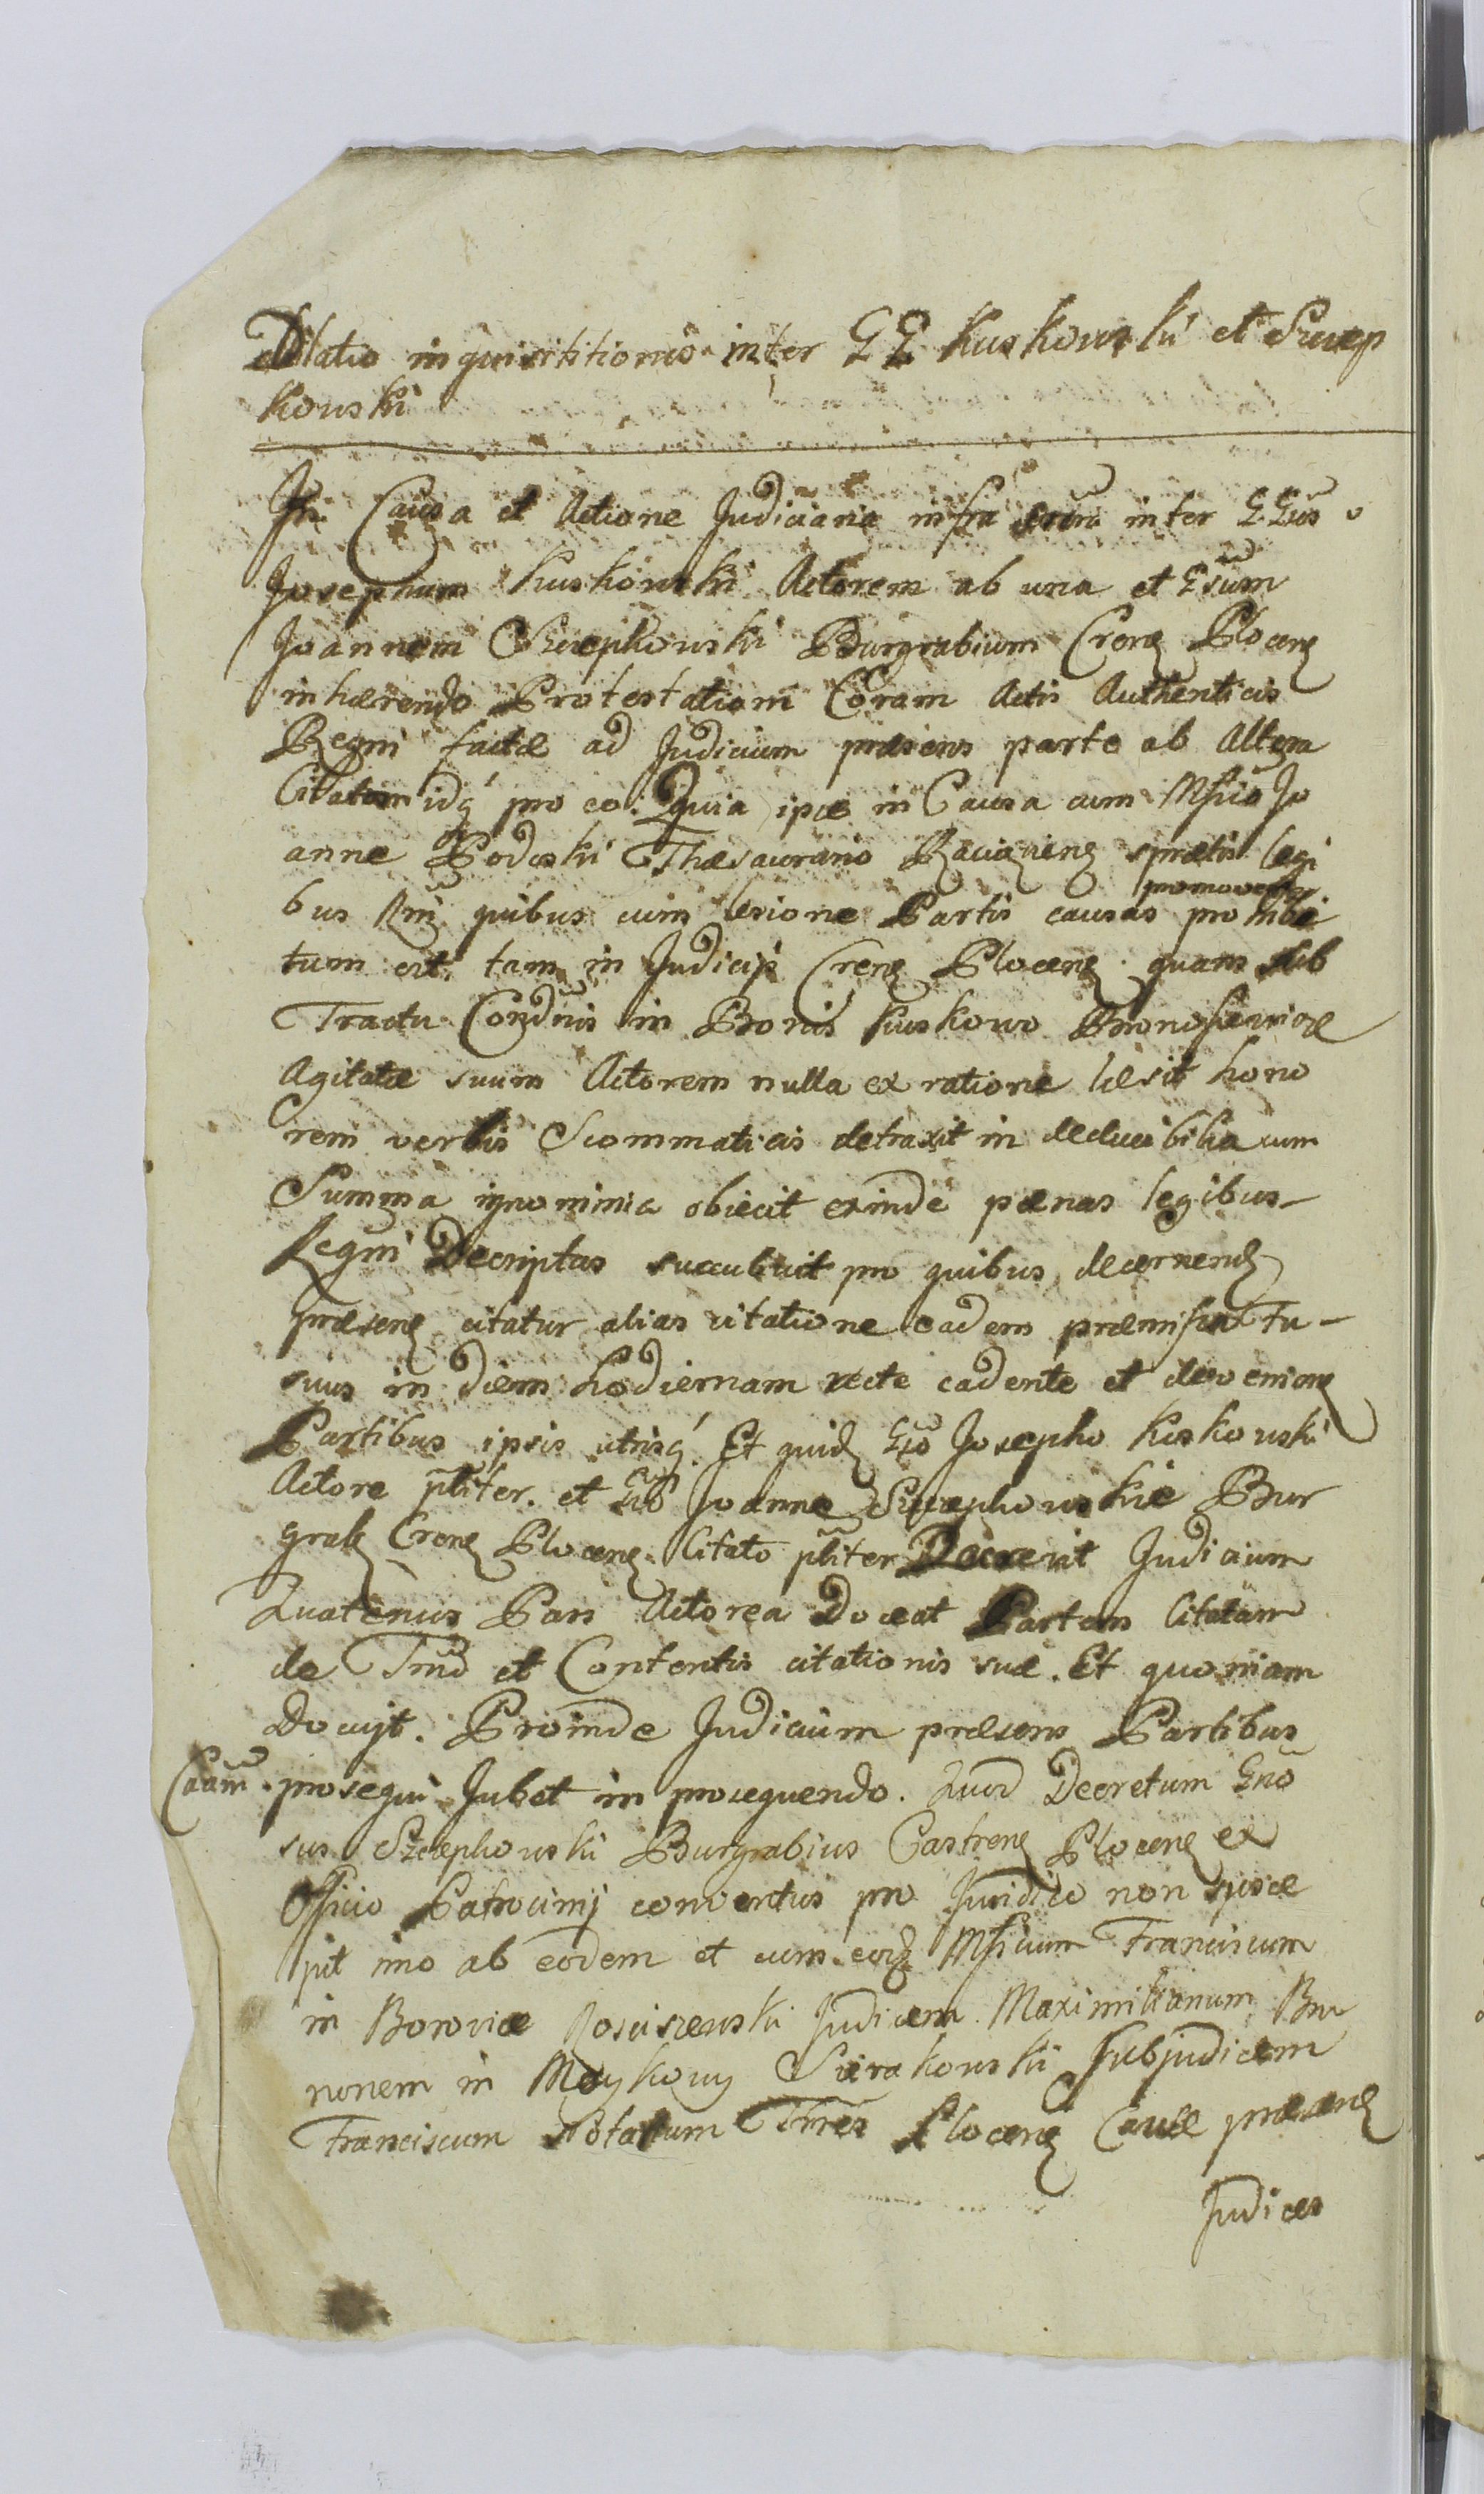 Dilatio inquisititionis inter GG Kuskowski et Szczep
kowski
In Causa et Actione Judiciaria infra scrūm inter GGūs
Josephum Kuskowski Actorem ab una et Gsūm
Joannem Szczepkowski Burgrabium Crens Plocens
inhærendo Protestationi Coram Actis Authenticis
Regni factæ ad Judicium præsens parte ab Altera
Citatum idq pro eo. Quia ipse in Causa cum Mfico Jo
anne Podoski Thæsaurario Raciąziens spretis legi
bus Rni quibus cum lesione Partis causas promovere prohibi
tum est, tam in Judicijs Crens Plocens quam sub
Tractu Condnis in Bonis Kuskowo
Agitatæ suum Actorem nulla ex ratione læsit hono
rem verbis Scommaticis detraxit in deducibilia cum
Summa ignominia obiecit exinde pænas legibus
Regni Descriptas succubuit pro quibus decernend
præsens citatur alias citatione eadem præmissa fu
sius in diem hodiernam recte cadente et devenien
Partibus ipsis utrisq. Et quid Gso Josepho Kuskowski
Actore pliter. et Gso Joanne Szczepkowskie Bur
grab Crens Plocens Citato pliter Decrevit Judicium
Quatenus Pars Actorea Doceat Partem Citatam
de Tmo et Contentis citationis suæ. Et quoniam
Docuit. Proinde Judicium præsens Partibus
Caām prosequi Jubet in prosequendo. Quod Decretum Gno
sus Szczepkowski Burgrabius Castrens Plocens ex
Officio Patrocinij conventus pro Juridico non susce
pit imo ab eodem et cum eod Mficum Franciscum
in Borowice Rosciszewski Judicem Maximilianum Bru
nonem in Sierakowski Subjudicem
Franciscum Notarium Tmres Plocens Causæ præsens
Judices